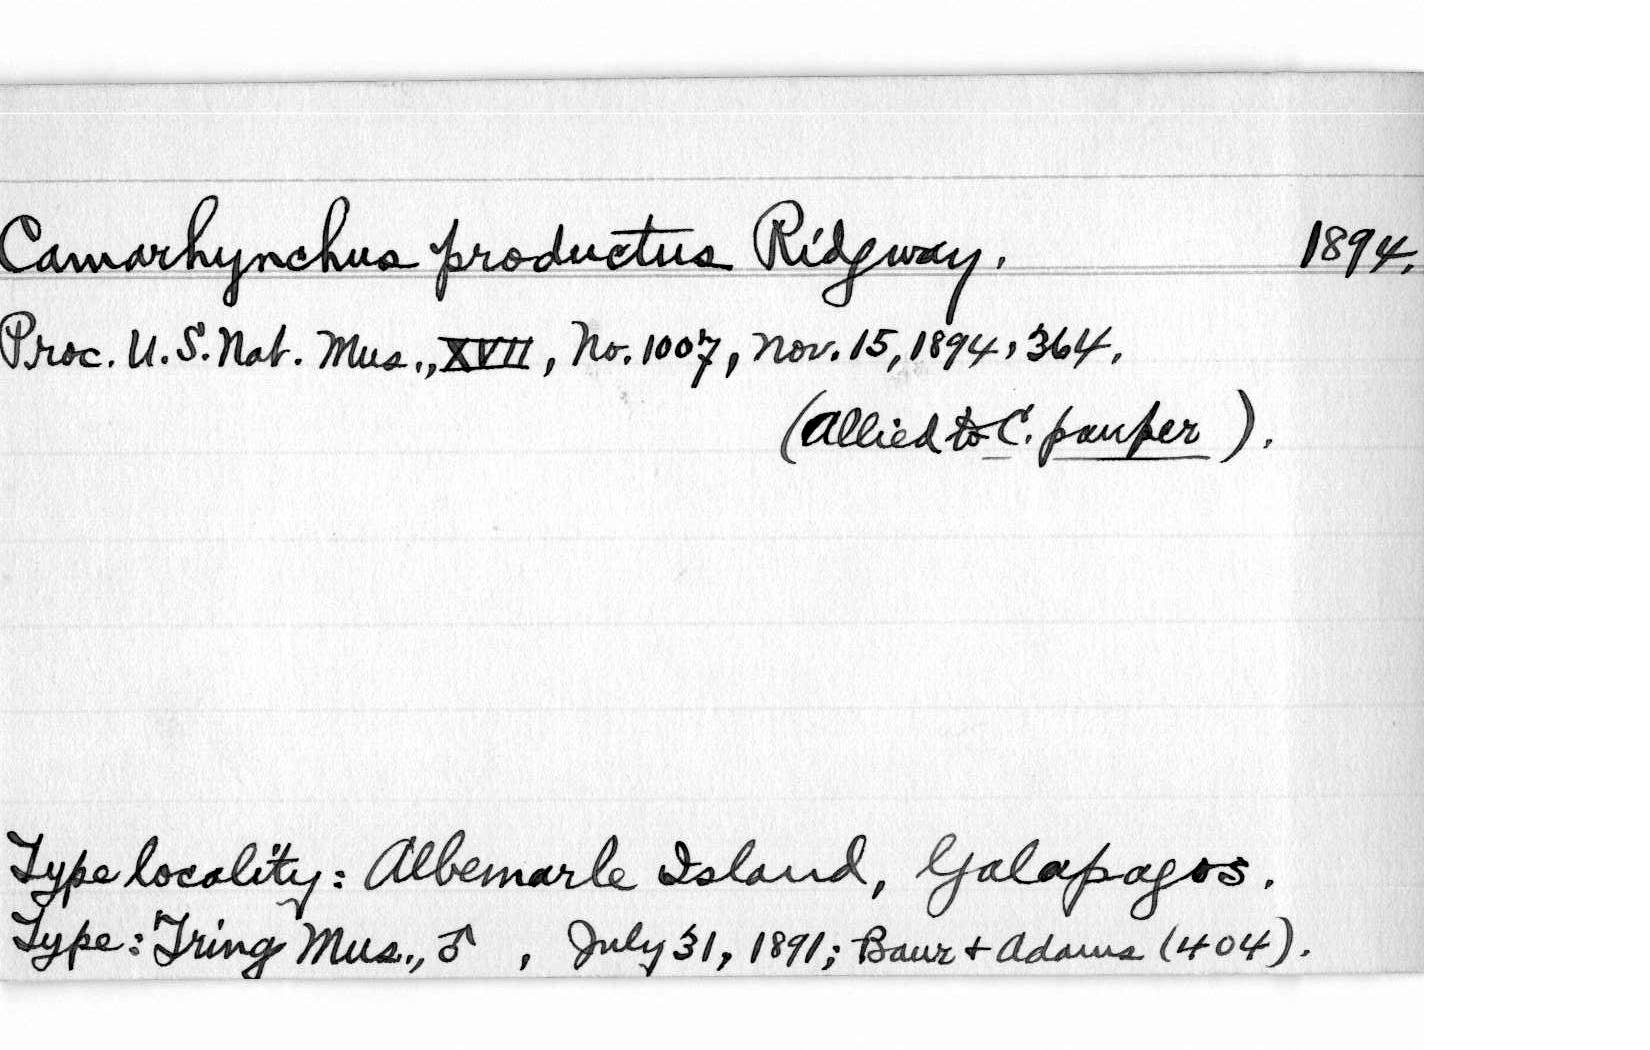 Camarhynchus productus Ridgway. 1894.
Proc. U.S. Nat. Mus., XVII, No. 1007, Nov. 15, 1894, 364.
(Allied to C. pauper).
Type locality: Albemarle Island, Galapagos.
Type: Tring Mus., ♂ , July 31, 1891; Baur + Adams (404).